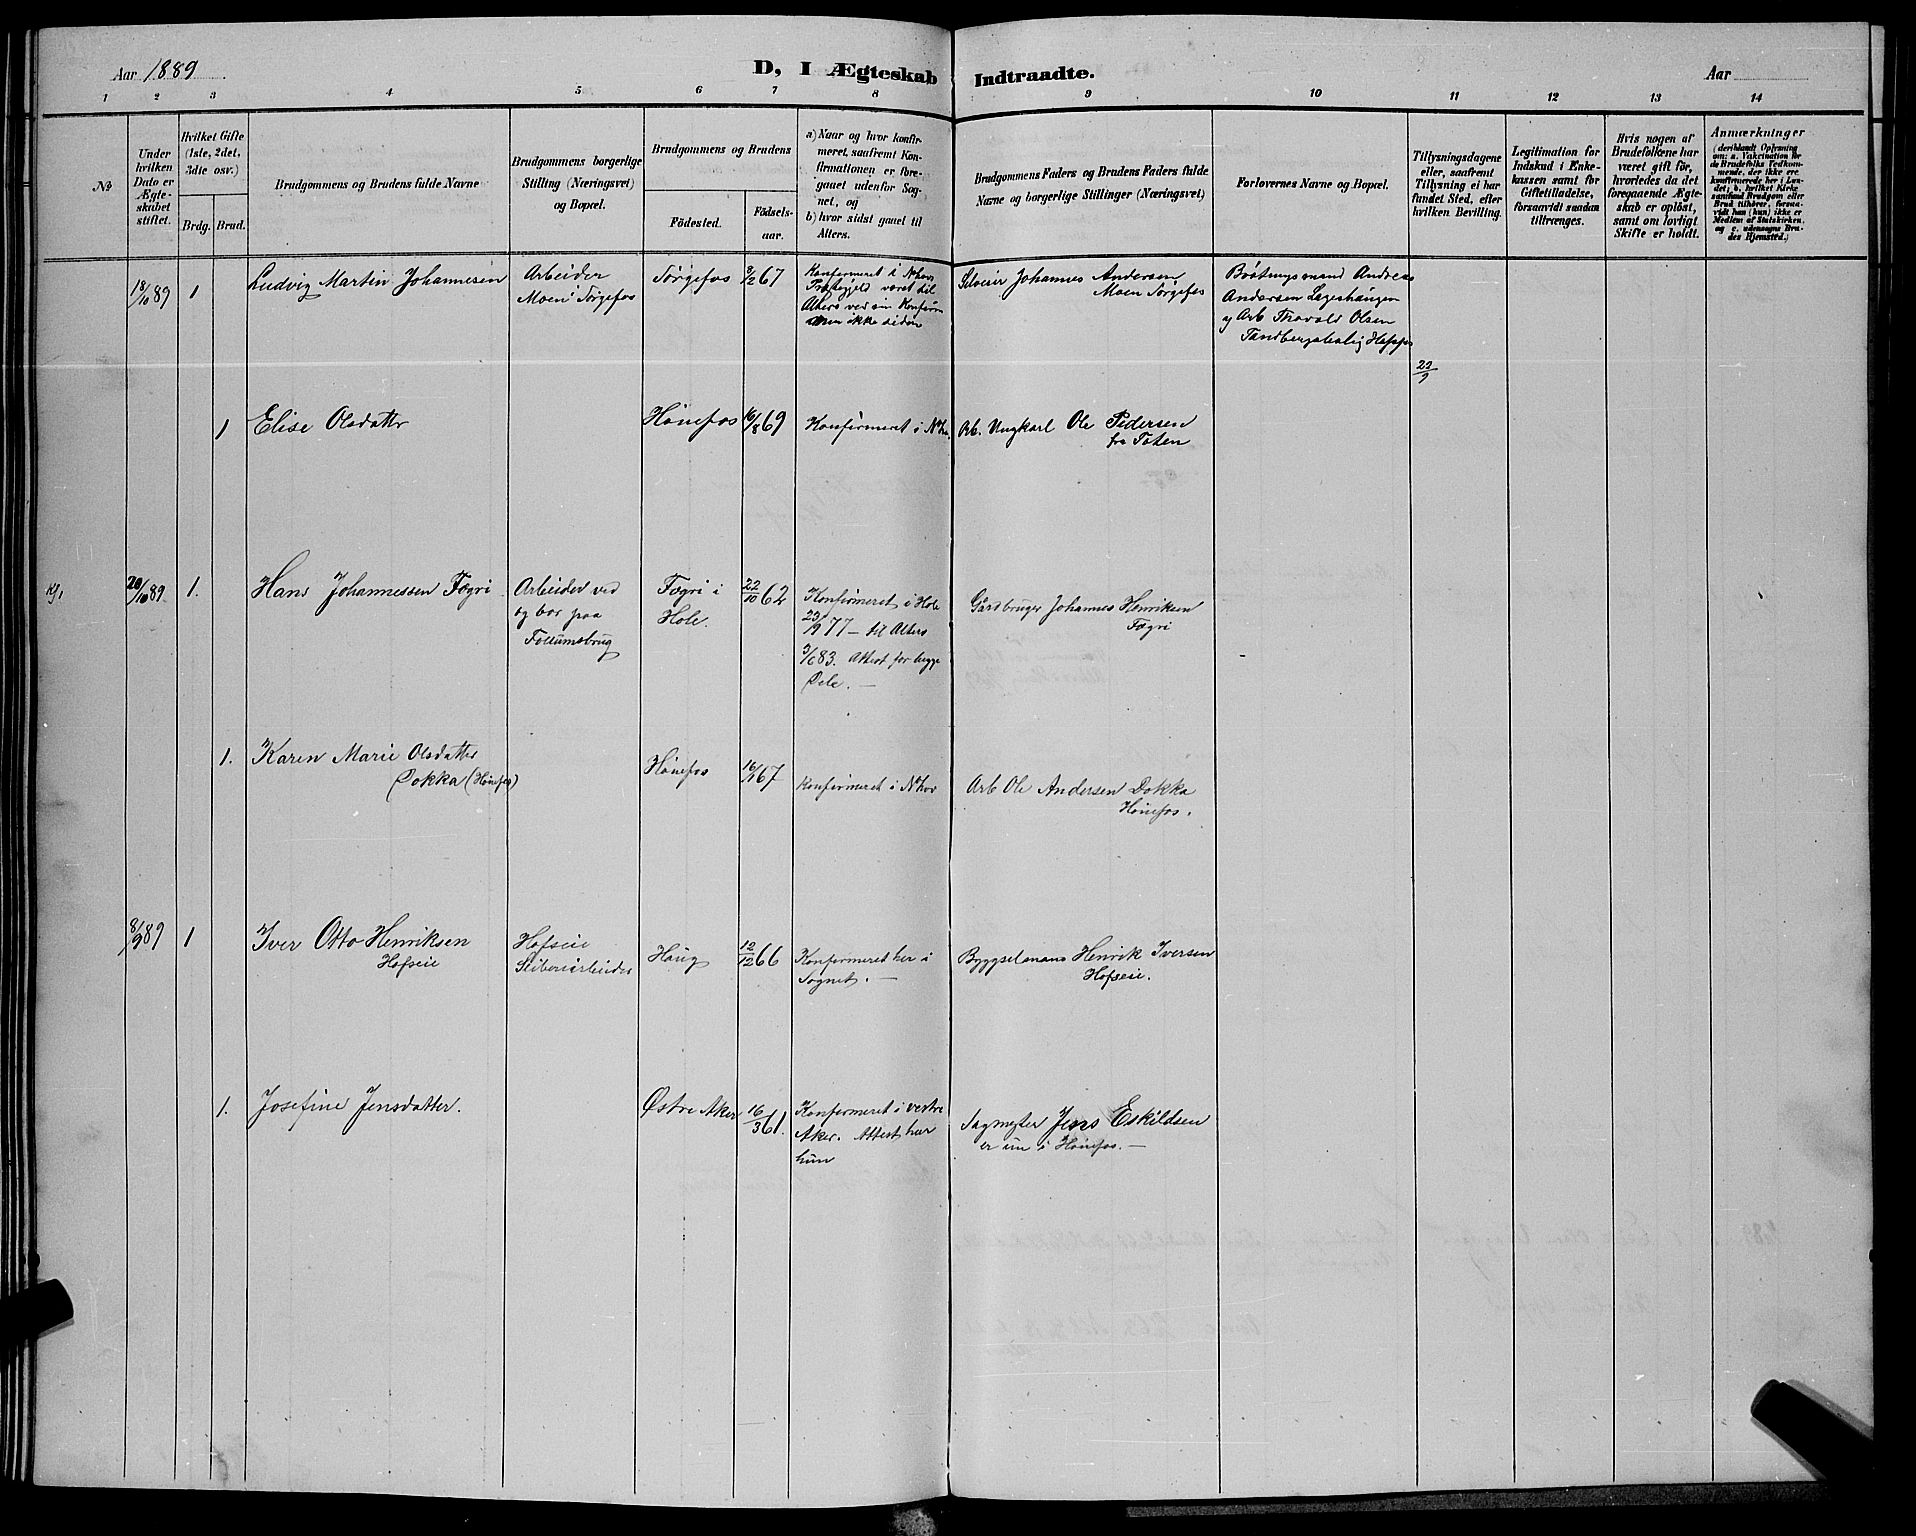 Aar 1889.
D, I Ægteskab Indtraadte.
Aar
1 2 3 4 5 6 7 8 9 10 11 12 13 14
No
Under hvilken Dato er Ægteskabet stiftet.
Hvilket Gifte (1ste, 2det, 3die osv.)
Brdg. Brud.
Brudgommens og Brudens fulde Navne
Brudgommens borgerlige Stilling (Næringsvei) og Bopæl.
Brudgommens og Brudens
Födested. Födsels-aar.
a) Naar og hvor konfirmeret, saafremt Konfirmationen er foregaaet udenfor Sognet, og
b) hvor sidst gaaet til Alters.
Brudgommens Faders og Brudens Faders fulde Navne og borgerlige Stillinger (Næringsvei)
Forlovernes Navne og Bopæl.
Tillysningsdagene eller, saafremt Tillysning ei har fundet Sted, efter hvilken Bevilling.
Legitimation for Indskud i Enkekassen samt for Giftetilladelse, forsaavidt saadan tiltrænges.
Hvis nogen af Brudefolkene har været gift för, hvorledes da det foregaaende Ægteskab er oplöst, samt om lovligt Skifte er holdt.
Anmærkninger (deriblandt Oplysning om: a. Vakcination for de Brudefolks Vedkommende, der ikke ere konfirmerede her i Landet; b. hvilket Kirkesamfund Brudgom eller Brud tilhörer, forsaavidt han (hun) ikke er Medlem af Statskirken, og c. udensogns Brudes Hjemsted.)
18/10 89 1 Ludvig Martin Johannesen
Arbeider
Moen i Tørgefos
Tørgefos 8/2 67
Konfirmeret i N.hov
Præstegjeld været til
Alters ved sin Konfirm
men ikke siden
Selveier Johannes Andersen
Moen Tørgefos
Andreas
Andersen
og Arb Thovald Olsen
22/9
1 Elise Olsdattr
Hönefos 16/8 69
Konfirmeret i N.hov
Arb. Ungkarl Ole Pedersen
fra Toten
Kj,
20/10 89. 1. Hans Johannessen Fægri
Arbeider ved
og bor paa
Follumsbrug
Fægri i
Hole.
22/10 62
Konfirmeret i Hole
23/9 77 — til Alters
3/6 83. Attest for begge
Dele. —
Gårdbruger Johannes Henriksen
Fægri
1. Karen Marie Olsdatter
Dokka (Hönefos)
Hönefos
16/9 67
Konfirmeret i N.hov
Arb Ole Andersen Dokka
Hönefos.
8/9 89 1 Iver Otto Henriksen
Hofseie
Hofseie
Sliberiarbeider
Haug
12/12 66
Konfirmeret her i
Sognet. —
Bygselmans Henrik Iversen
Hofseie.
1. Josefine Jensdatter.
Østre Aker
16/3 61.
Konfirmeret i vestre
Aker. Attest har
hun
Sagmester Jens Eskildsen
er nu i Hönefos. —